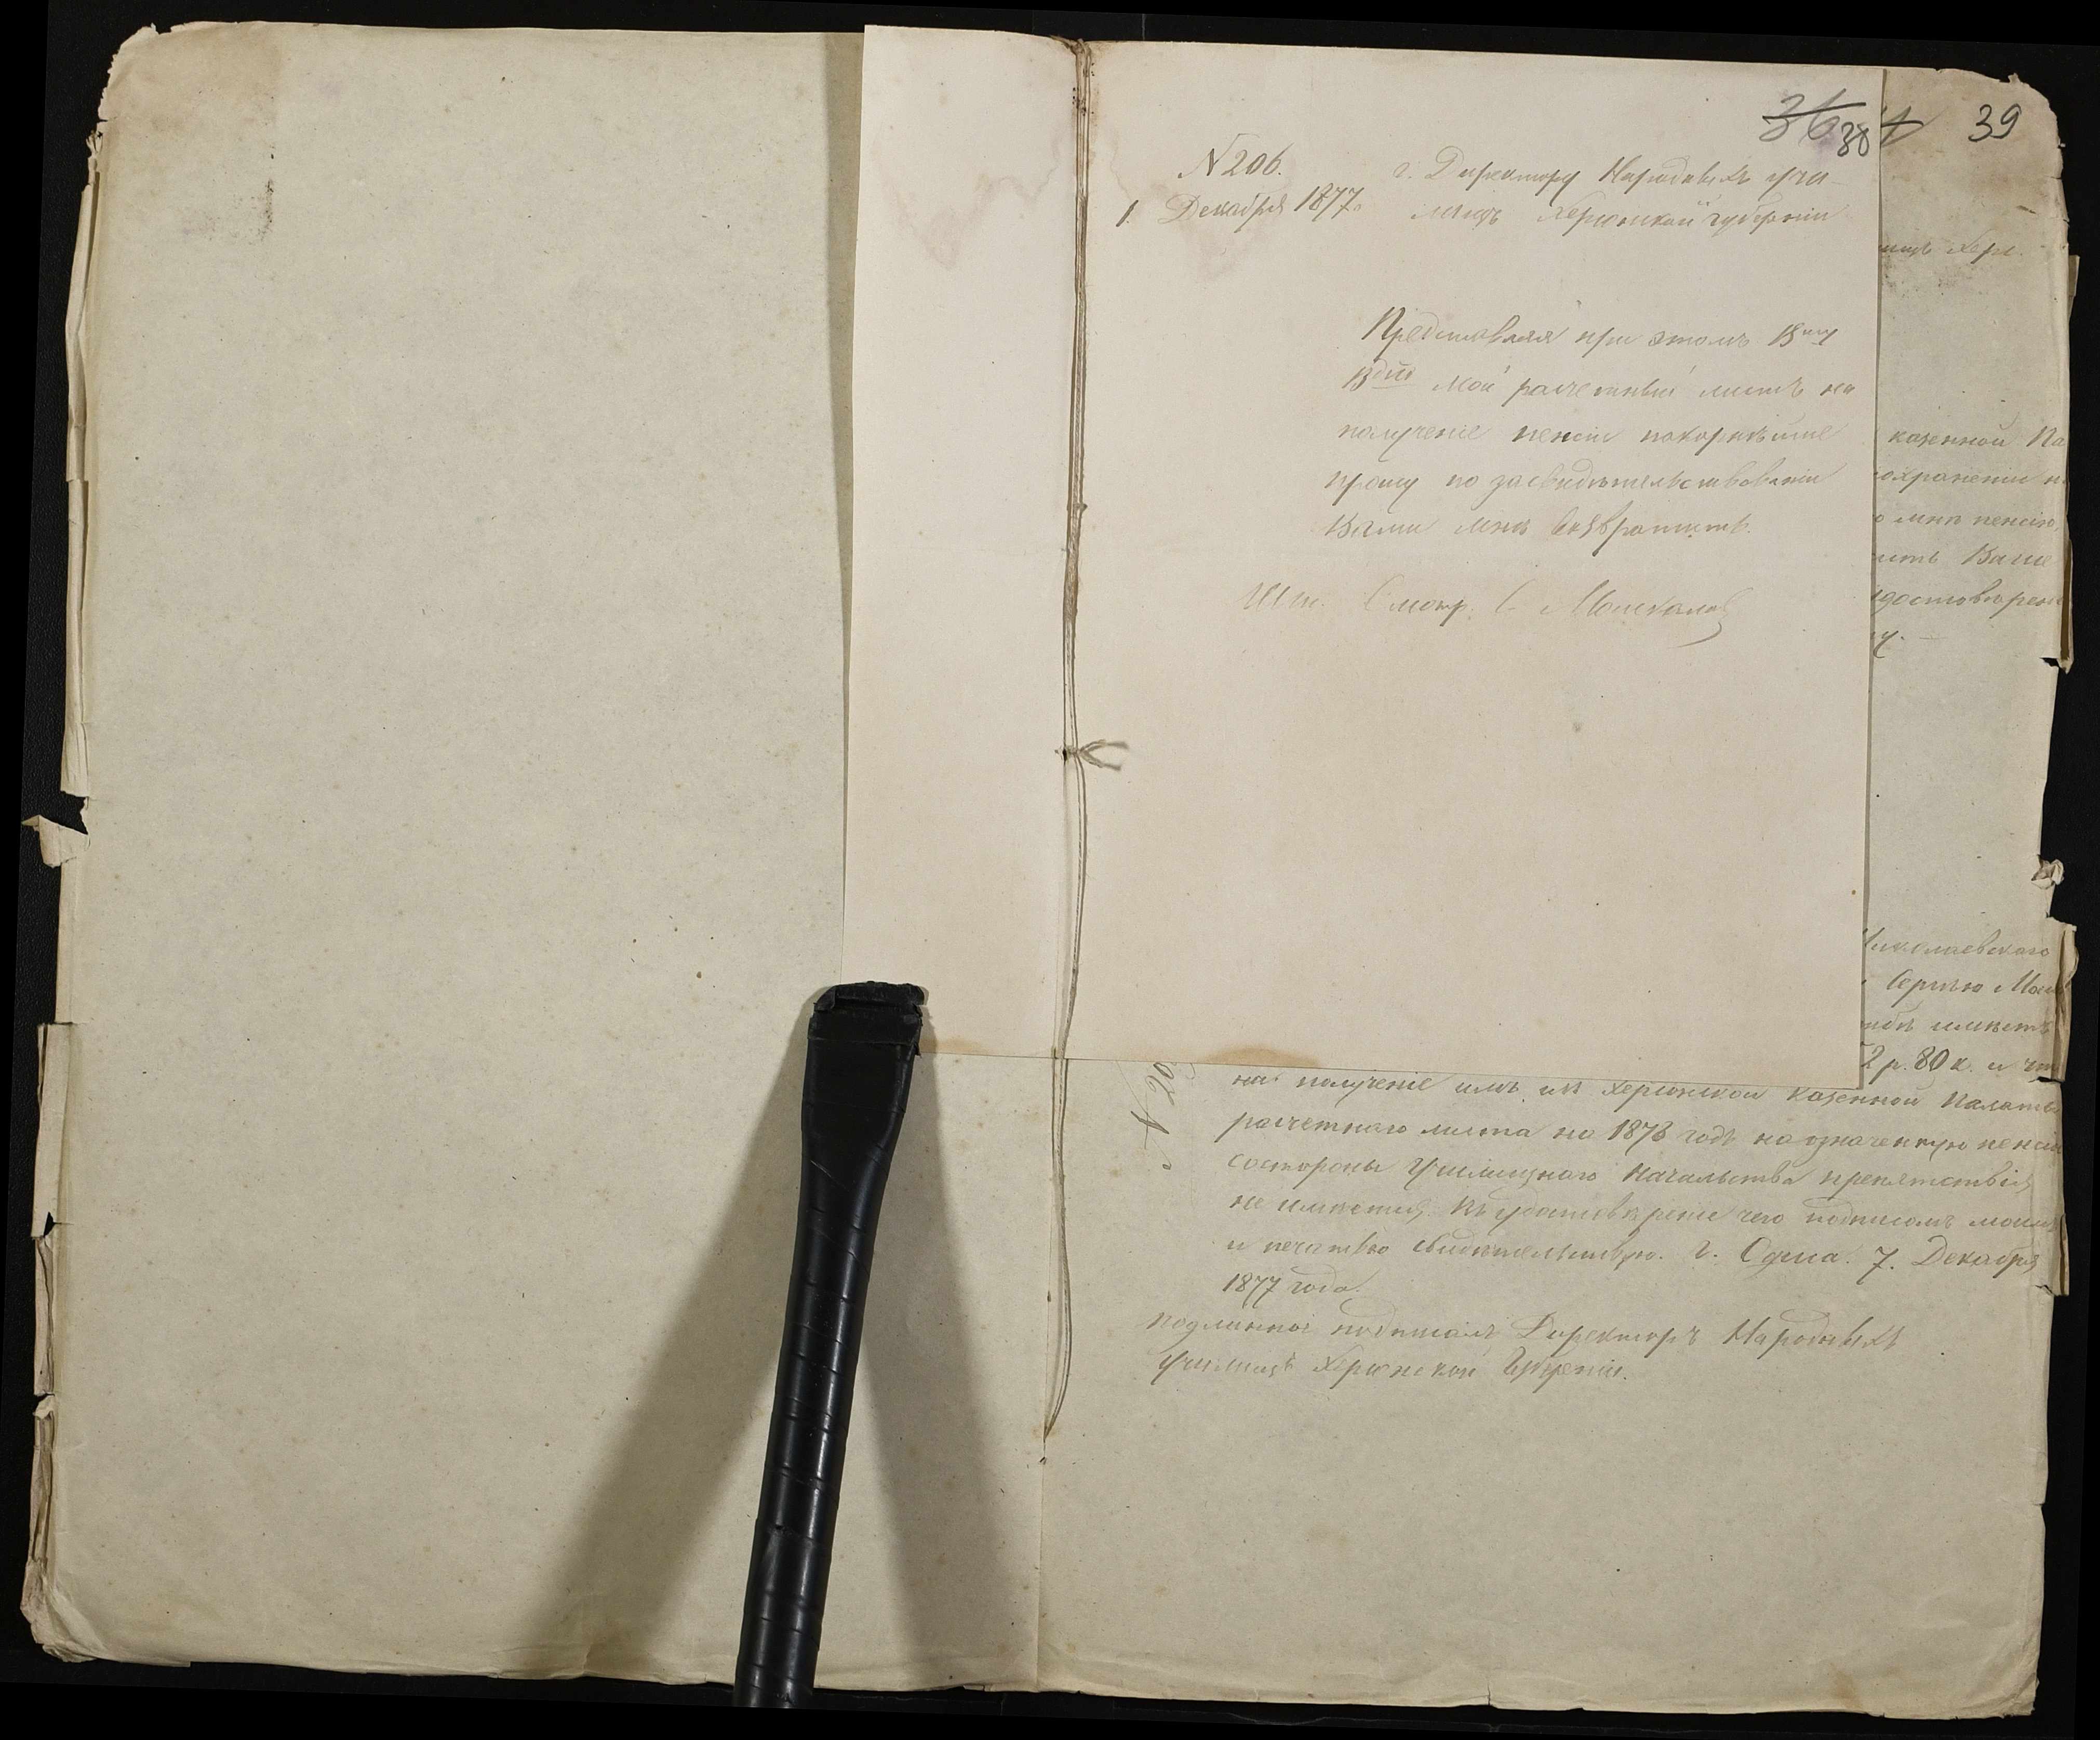 36 38 39
N 206.
1. Декабря 1877 г.
г. Директору Народныхъ учи-
лищъ Херсонской губерніи
Представляя при этомъ Ваму
Вдію мой расчетный листъ на
полученіе пенсіи покорнѣйше
прошу по засвидѣтельствованіи
Вами мнѣ возвратить.
Шт. Смотр. С. Москалев
лищъ Херс.
казенной Па
сохраненіи
мнѣ пенсію,
Ваше
удостовѣреніе
Николаевскаго
Сергѣю Мос
имѣетъ
2 р. 80 к. и
на полученіе имъ изъ Херсонской Казенной Палаты
расчетнаго листа на 1878 годъ на означенную пенсію
состороны Училищнаго Начальства препятствія
не имѣется. Въ удостовѣреніе чего подписомъ моимъ
и печатью свидѣтельствую. г. Одесса. 7. Декабря
1877 года.
Подлинное подписалъ Директоръ Народныхъ
Училищъ Херсонской Губерніи.